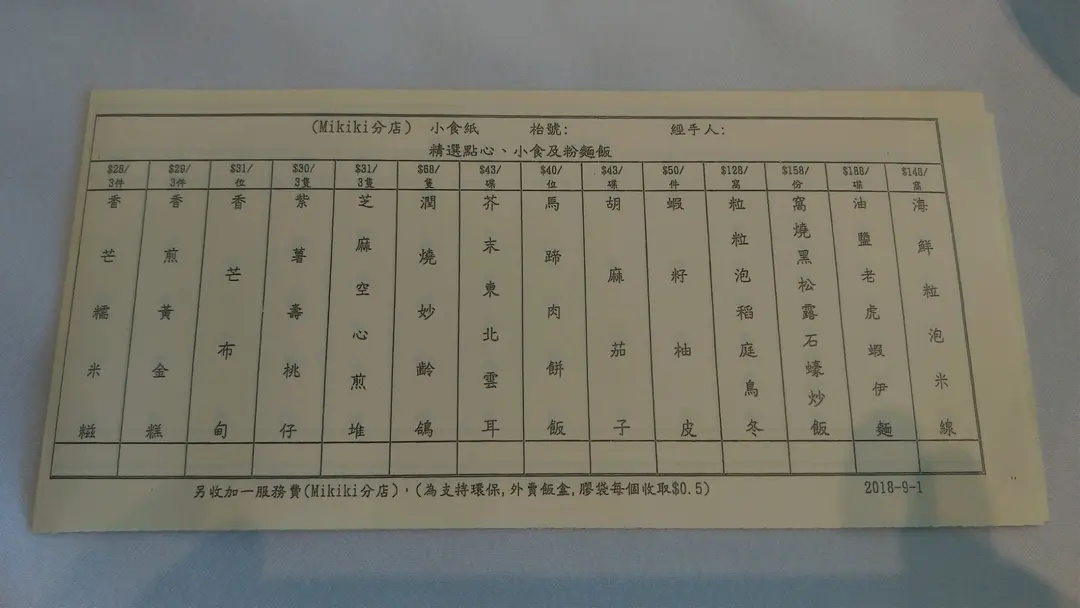 (Mikiki分店) 小食紙 枱號: 經手人:
精選點心、小食及粉麵飯
$28/
3件
香芒糯米糍
$29/
3件
香煎黃金糕
$31/
位
香芒布甸
$30/
3隻
紫薯壽桃仔
$31/
3隻
芝麻空心煎堆
$68/
隻
潤燒妙齡鴿
$43/
碟
芥末東北雲耳
$40/
位
馬蹄肉餅飯
$43/
碟
胡麻茄子
$50/
件
蝦籽柚皮
$128/
窩
粒粒泡稻庭鳥冬
$158/
份
窩燒黑松露石蠔炒飯
$188/
碟
油鹽老虎蝦伊麵
$148/
窩
海鮮粒泡米線
另收加一服務費(Mikiki分店)，(為支持環保,外賣飯盒,膠袋每個收取$0.5)
2018-9-1